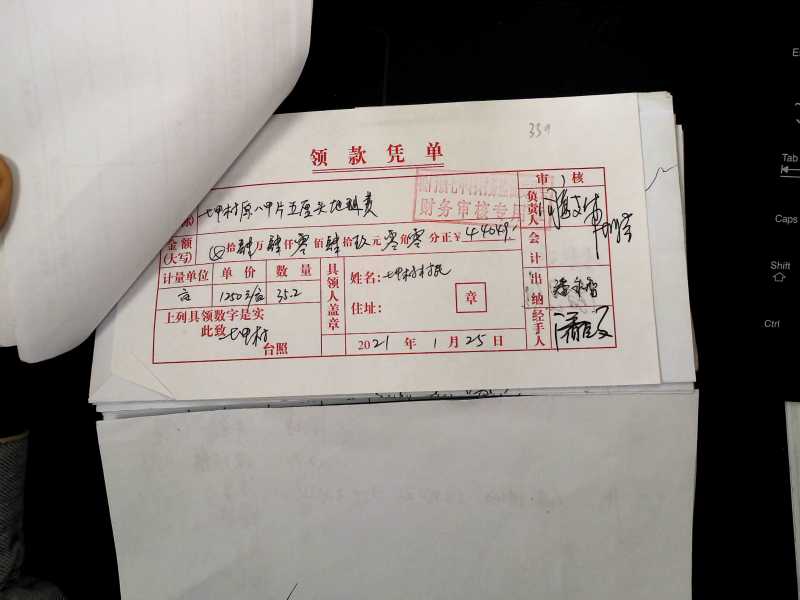 339
领款凭单
审 核
七甲村原八甲片五厘头地租费
财务审核专用
负责人
金额
(大写)
拾肆万肆仟零佰肆拾玖元零角零分正¥44049.
会计
计量单位 单价 数量
亩 1250元/亩 35.2
具领人盖章
姓名:七甲村村民
住址:
章
出纳
上列具领数字是实
此致 七甲村
台照
2021年1月25日
经手人
Tab
Caps
Shift
Ctrl